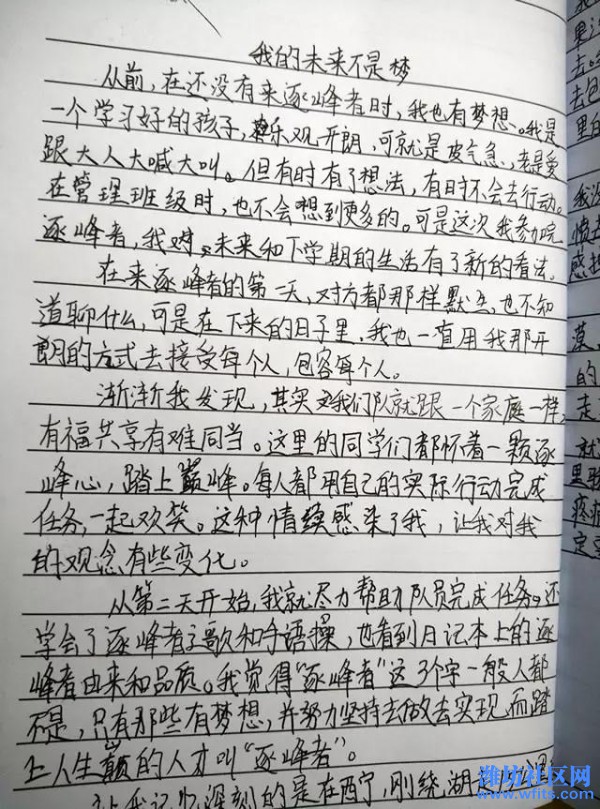 我的未来不是梦
从前，在还没有来逐峰者时，我也有梦想。我是
一个学习好的孩子，乐观开朗，可就是皮气急，老是爱
跟大人大喊大叫。但有时有了想法，有时不会去行动。
在管理班级时，也不会想到更多的。可是这次我参加完
逐峰者，我对未来和下学期的生活有了新的看法。
在来逐峰者的第一天，对方都那样默默，也不知
道聊什么，可是在下来的日子里，我也一直用我那开
朗的方式去接受每个人，包容每个人。
渐渐我发现，其实我们队就跟一个家庭一样，
有福共享有难同当。这里的同学们都怀着一颗逐
峰心，踏上巅峰。每人都用自己的实际行动完成
任务，一起欢笑。这种情绪感染了我，让我对我
的观念有些变化。
从第二天开始，我就尽力帮助队员完成任务，还
学会了逐峰者之歌和手语操，也看到日记本上的逐
峰者由来和品质。我觉得“逐峰者”这3个字一般人都
不是，只有那些有梦想，并努力坚持去做去实现而踏
上人生巅的人才叫“逐峰者”。
让我记忆深刻的是在西宁，刚绕湖
果
去
去包
里的
我没
感
漠，
的
走
就
里
疼
定
潍坊社区网
www.wfits.com